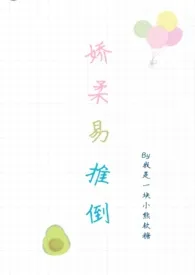 娇柔易推倒
By我是一块小熊软糖